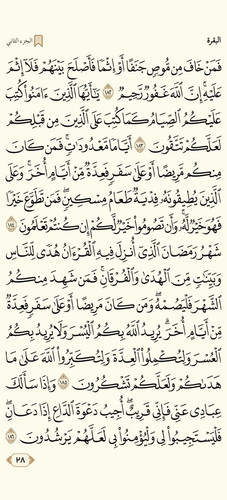 البقرة
الجزء الثاني
فَمَنْ خَافَ مِن مُّوصٍ جَنَفًا أَوْ إِثْمًا فَأَصْلَحَ بَيْنَهُمْ فَلَآ إِثْمَ
عَلَيْهِ ۚ إِنَّ ٱللَّهَ غَفُورٌ رَّحِيمٌ ١٨٢ يَـٰٓأَيُّهَا ٱلَّذِينَ ءَامَنُوا۟ كُتِبَ
عَلَيْكُمُ ٱلصِّيَامُ كَمَا كُتِبَ عَلَى ٱلَّذِينَ مِن قَبْلِكُمْ
لَعَلَّكُمْ تَتَّقُونَ ١٨٣ أَيَّامًا مَّعْدُودَٰتٍ ۚ فَمَن كَانَ
مِنكُم مَّرِيضًا أَوْ عَلَىٰ سَفَرٍ فَعِدَّةٌ مِّنْ أَيَّامٍ أُخَرَ ۚ وَعَلَى
ٱلَّذِينَ يُطِيقُونَهُۥ فِدْيَةٌ طَعَامُ مِسْكِينٍ ۖ فَمَن تَطَوَّعَ خَيْرًا
فَهُوَ خَيْرٌ لَّهُۥ ۚ وَأَن تَصُومُوا۟ خَيْرٌ لَّكُمْ ۖ إِن كُنتُمْ تَعْلَمُونَ ١٨٤
شَهْرُ رَمَضَانَ ٱلَّذِىٓ أُنزِلَ فِيهِ ٱلْقُرْءَانُ هُدًى لِّلنَّاسِ
وَبَيِّنَـٰتٍ مِّنَ ٱلْهُدَىٰ وَٱلْفُرْقَانِ ۚ فَمَن شَهِدَ مِنكُمُ
ٱلشَّهْرَ فَلْيَصُمْهُ ۖ وَمَن كَانَ مَرِيضًا أَوْ عَلَىٰ سَفَرٍ فَعِدَّةٌ
مِّنْ أَيَّامٍ أُخَرَ ۗ يُرِيدُ ٱللَّهُ بِكُمُ ٱلْيُسْرَ وَلَا يُرِيدُ بِكُمُ
ٱلْعُسْرَ وَلِتُكْمِلُوا۟ ٱلْعِدَّةَ وَلِتُكَبِّرُوا۟ ٱللَّهَ عَلَىٰ مَا
هَدَىٰكُمْ وَلَعَلَّكُمْ تَشْكُرُونَ ١٨٥ وَإِذَا سَأَلَكَ
عِبَادِى عَنِّى فَإِنِّى قَرِيبٌ ۖ أُجِيبُ دَعْوَةَ ٱلدَّاعِ إِذَا دَعَانِ ۖ
فَلْيَسْتَجِيبُوا۟ لِى وَلْيُؤْمِنُوا۟ بِى لَعَلَّهُمْ يَرْشُدُونَ ١٨٦
٢٨